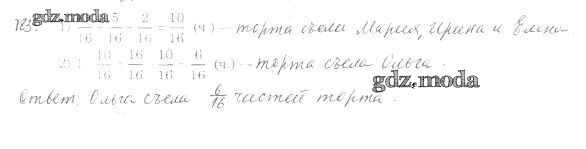 183. 1) 3/16 + 5/16 + 2/16 = 10/16 (ч.) – торта съели Мария, Ирина и Елена.
gdz.moda
2) 1 - 10/16 = 16/16 - 10/16 = 6/16 (ч.) – торта съела Ольга.
gdz.moda
Ответ: Ольга съела 6/16 частей торта.